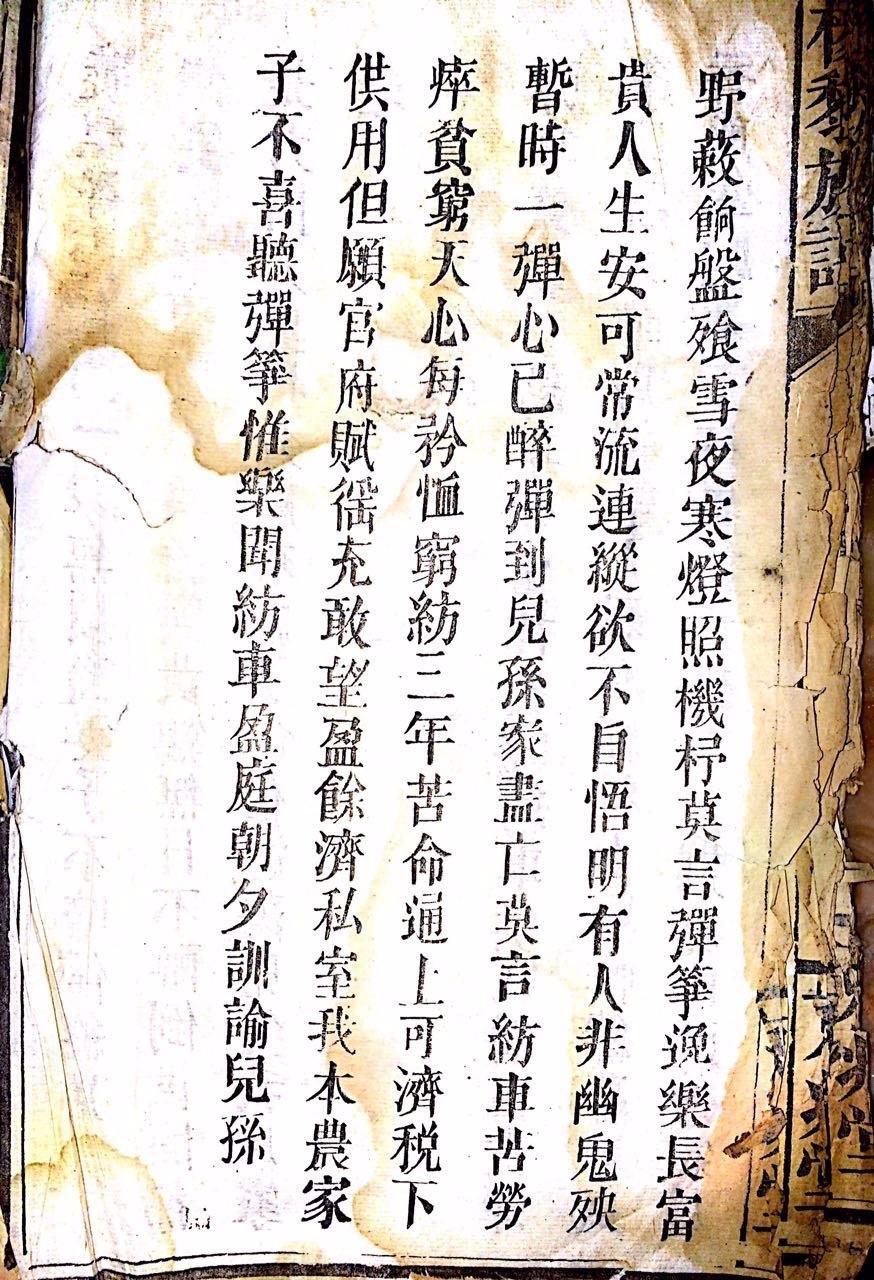 野蔌餉盤飧雪夜寒燈照機杼莫言彈箏逸樂長富
貴人生安可常流連縱欲不自悟明有人非幽鬼殃
暫時一彈心已醉彈到兒孫家盡亡莫言紡車苦勞
瘁貧窮天心每矜恤窮紡三年苦命通上可濟稅下
供用但願官府賦徭充敢望盈餘濟私室我本農家
子不喜聽彈箏惟樂聞紡車盈庭朝夕訓諭兒孫